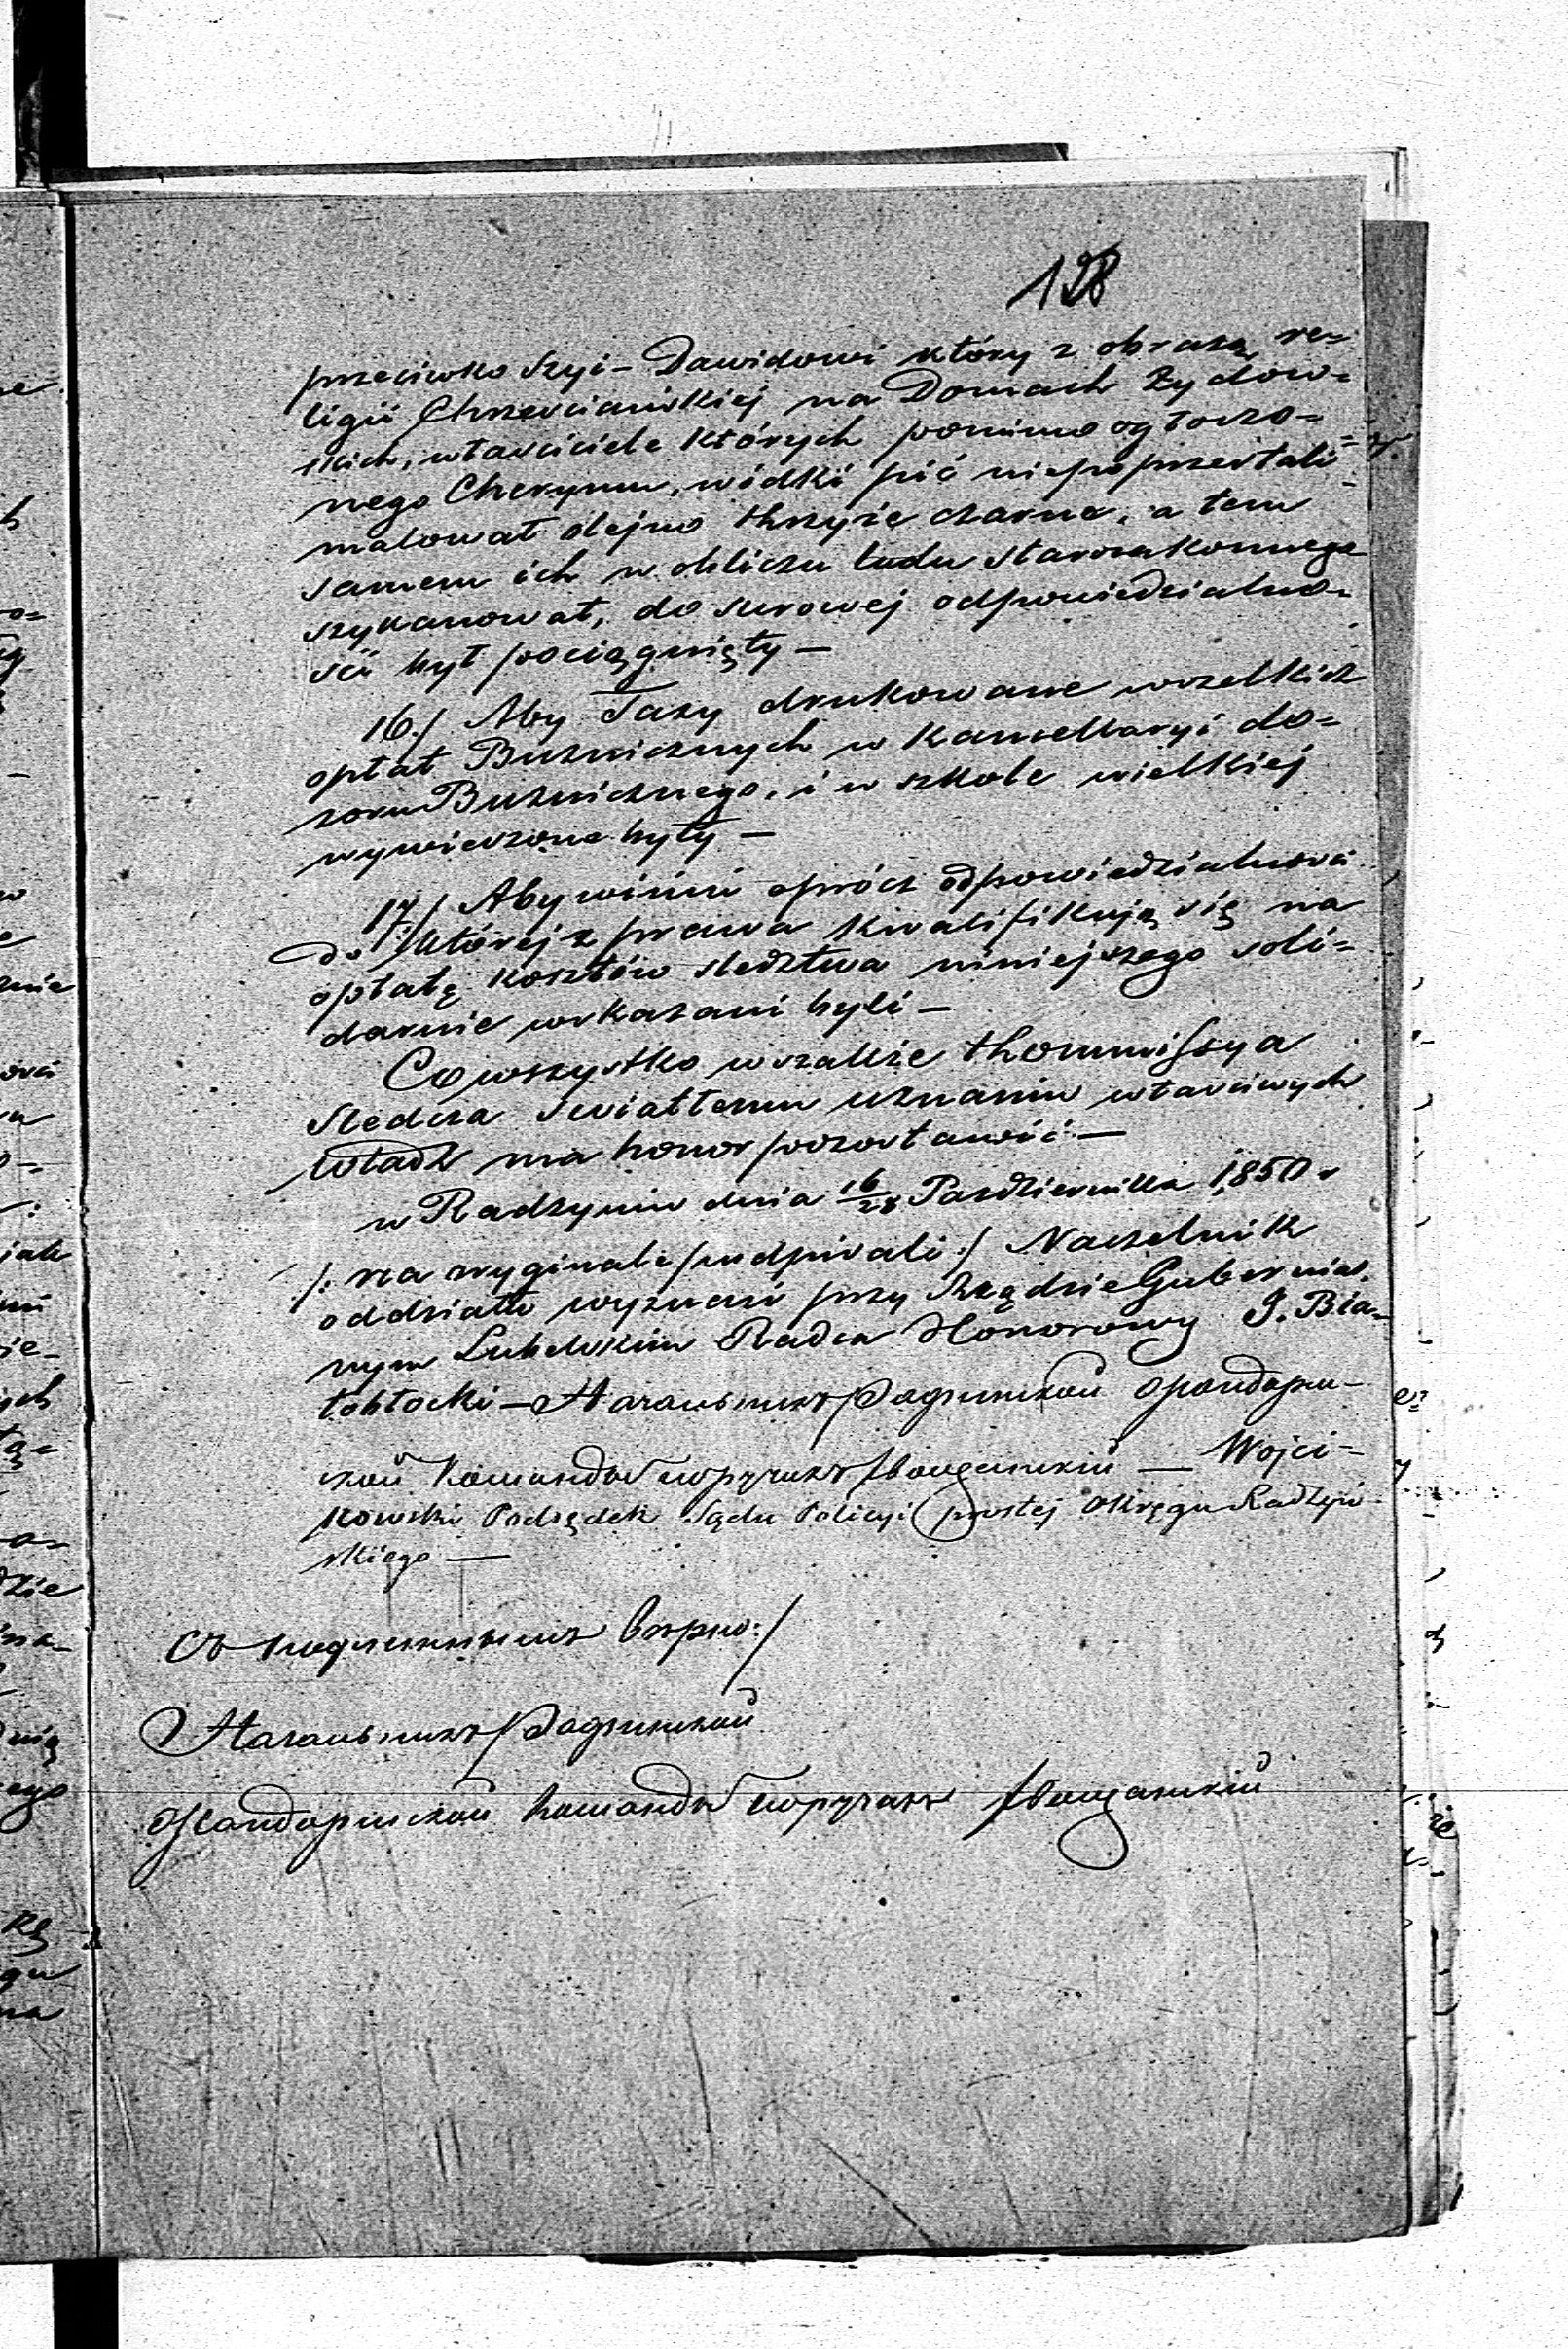 128
przeciwko Szyi – Dawidowi który z obrazą re=
ligii Chrześciańskiej na Domach Żydow=
skich, właściciele których pomimo ogłoszo=
nego Cherymu, wódki pić nieprzestali
malował olejno Krzyże czarne, a tem
samem ich w obliczu ludu starozakonnego
szykanował, do surowej odpowiedzialno=
ści był pociągnięty –
16./ Aby Taxy drukowane wszelkich
opłat Bużniczych w Kancellaryi do=
zoru Bużniczego, i w szkole wielkiej
wywieszone były –
17/ Aby winni oprócz odpowiedzialności
do której z prawa kwalifikują się na
opłatę kosztów śledztwa niniejszego soli=
darnie wskazani byli –
Co wszystko wszakże Kommissya
Śledcza światłemu uznaniu właściwych
Władz ma honor pozostawić –
w Radzyniu dnia 16/28 Października 1850 r
/: na oryginale podpisali :/ Naczelnik
oddziału wyznań przy Rządzie Gubernial.
nym Lubelskim Radca Honorowy J. Bia=
łobłocki – Начальникъ Радзинской Жандарм-
ской Команды Поручикъ — Wojci-
kowski Podsędek Sądu Policyi prostej Okręgu Radzyń
skiego —
Съ подлиннымъ вѣрно:/
Начальникъ Радзинской
Жандармской Команды Поручикъ